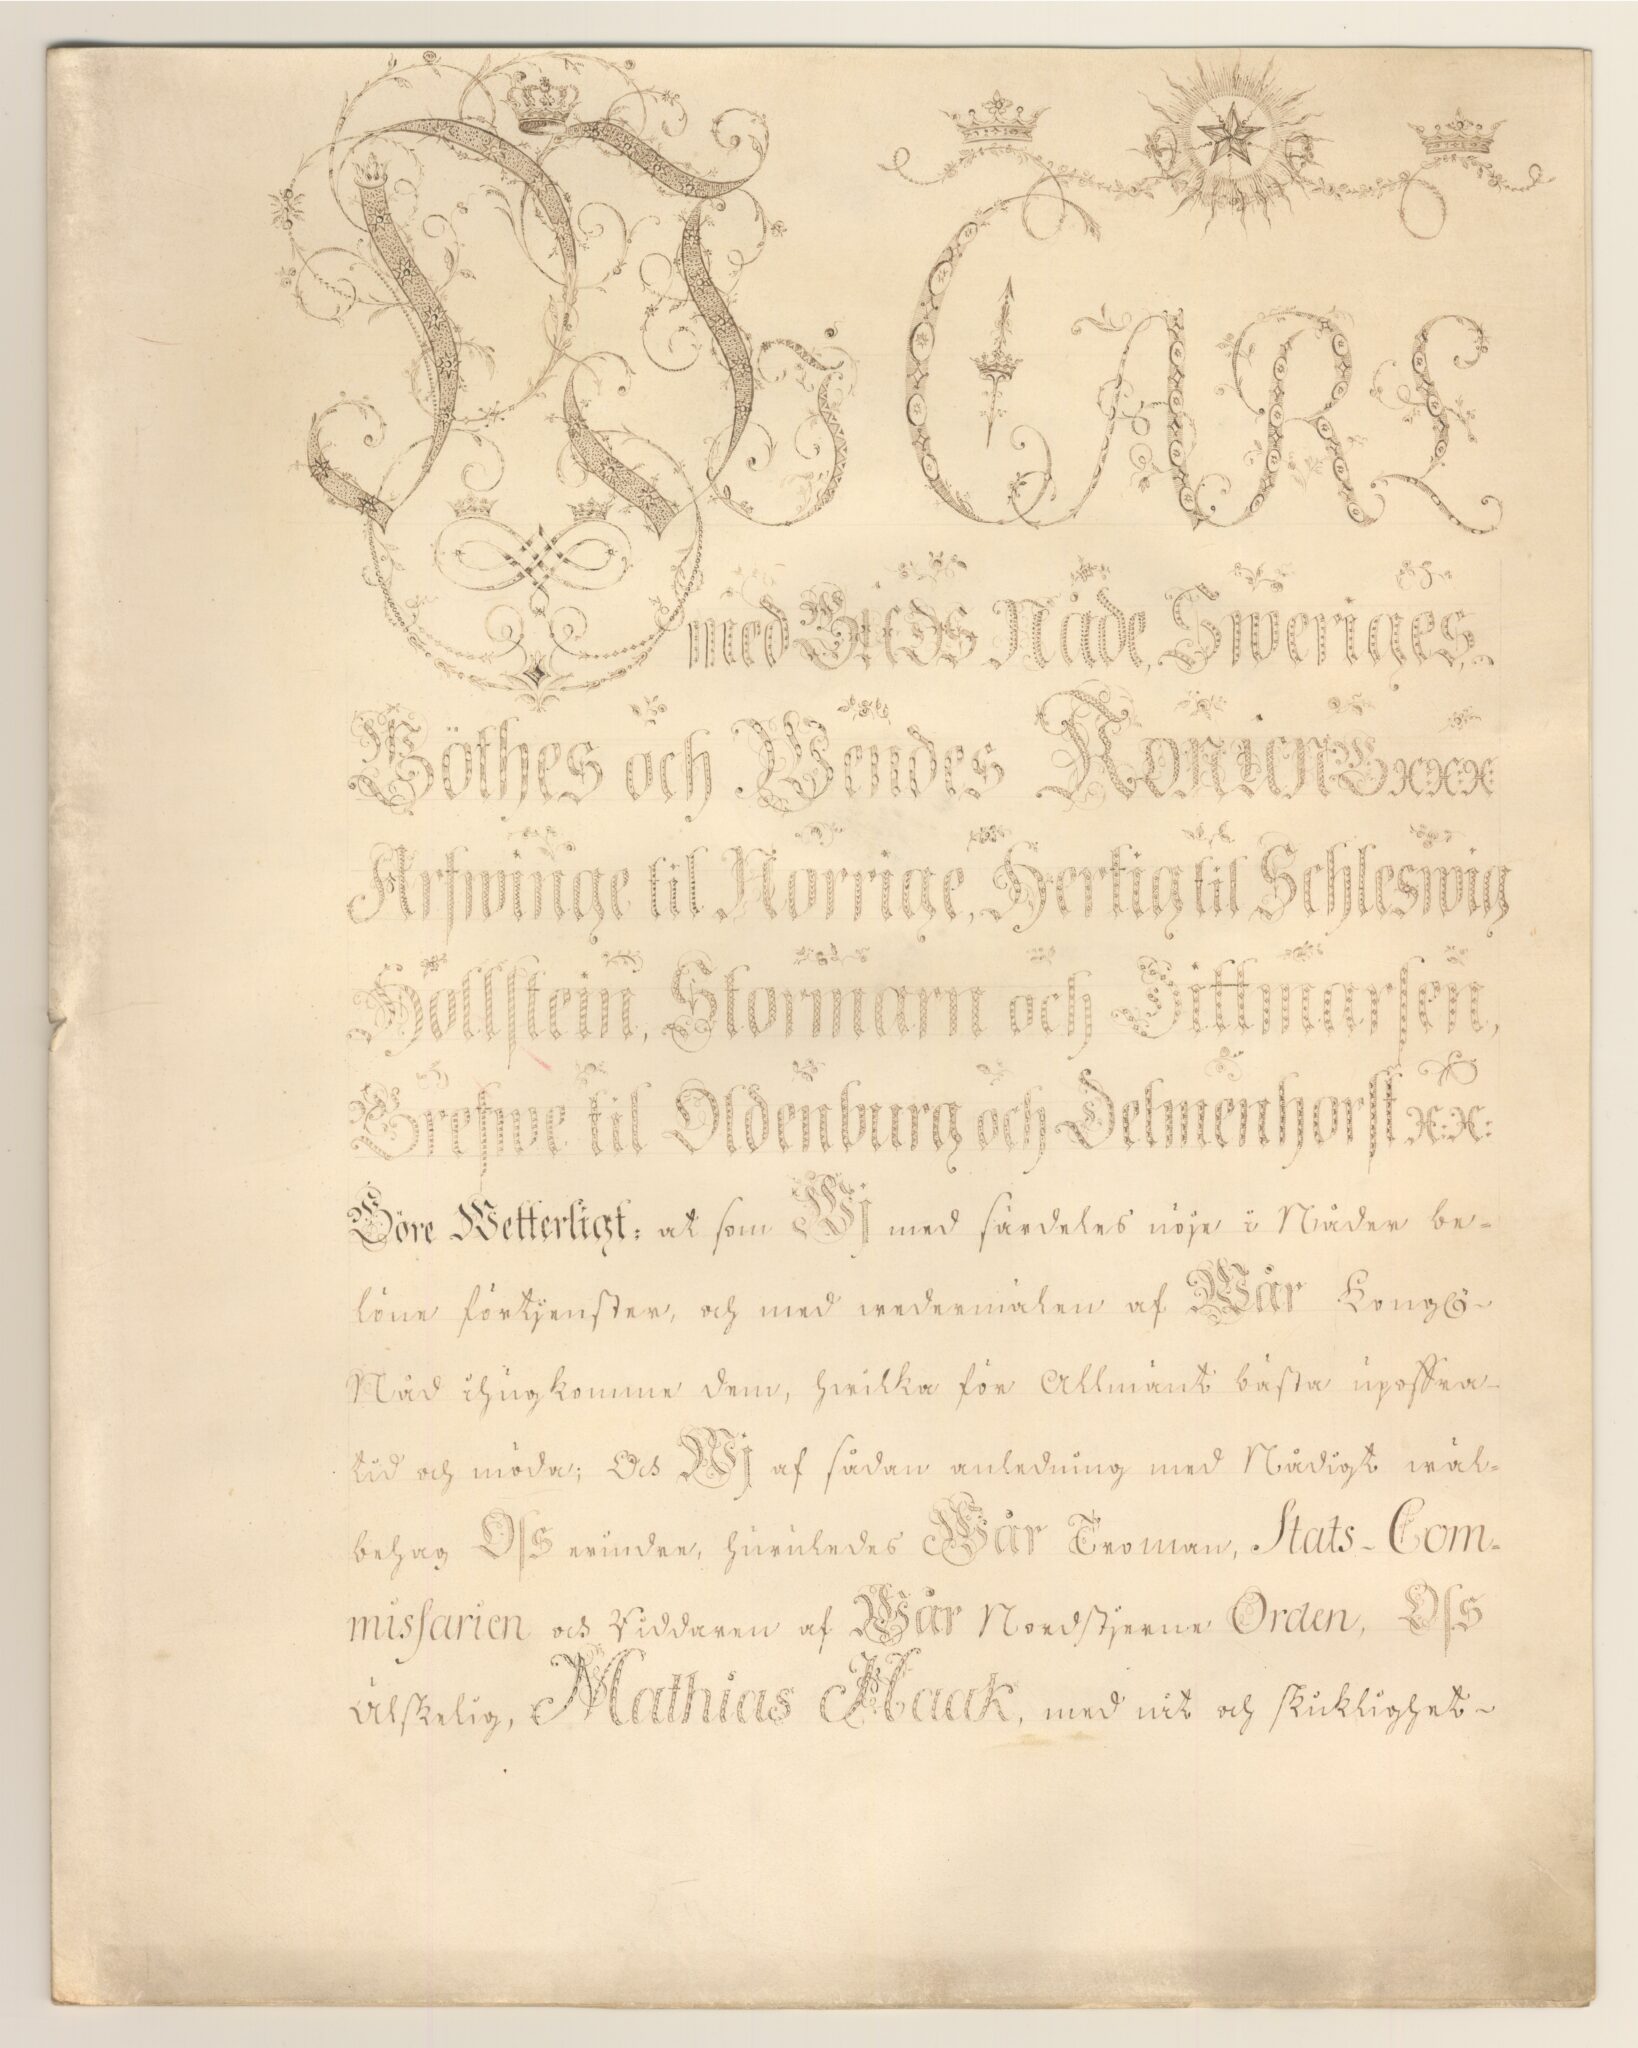 Wj CARL
med Guds Nåde, Sweriges,
Göthes och Wendes Konung xxx
Arfwinge til Norrige, Hertig til Schleswig
Hollstein, Stormarn och Dittmarsen,
Grefwe til Oldenburg och Delmenhorst x:x:
Göre Wetterligt: at som Wj med särdeles nöje i Nåder be-
löne förtjenster, och med wedermälen af Wår Kongl-
Nåd ihugkomme dem, hwilka för Allmänt bästa upoffra
tid och möda; Och Wj af sådan anledning med Nådigt wäl-
behag Oss erindre, huruledes Wår Troman, Stats-Com-
missarien och Riddaren af Wår Nordstjerne Orden, Oss
Älskelig, Mathias Haak, med nit och skicklighet